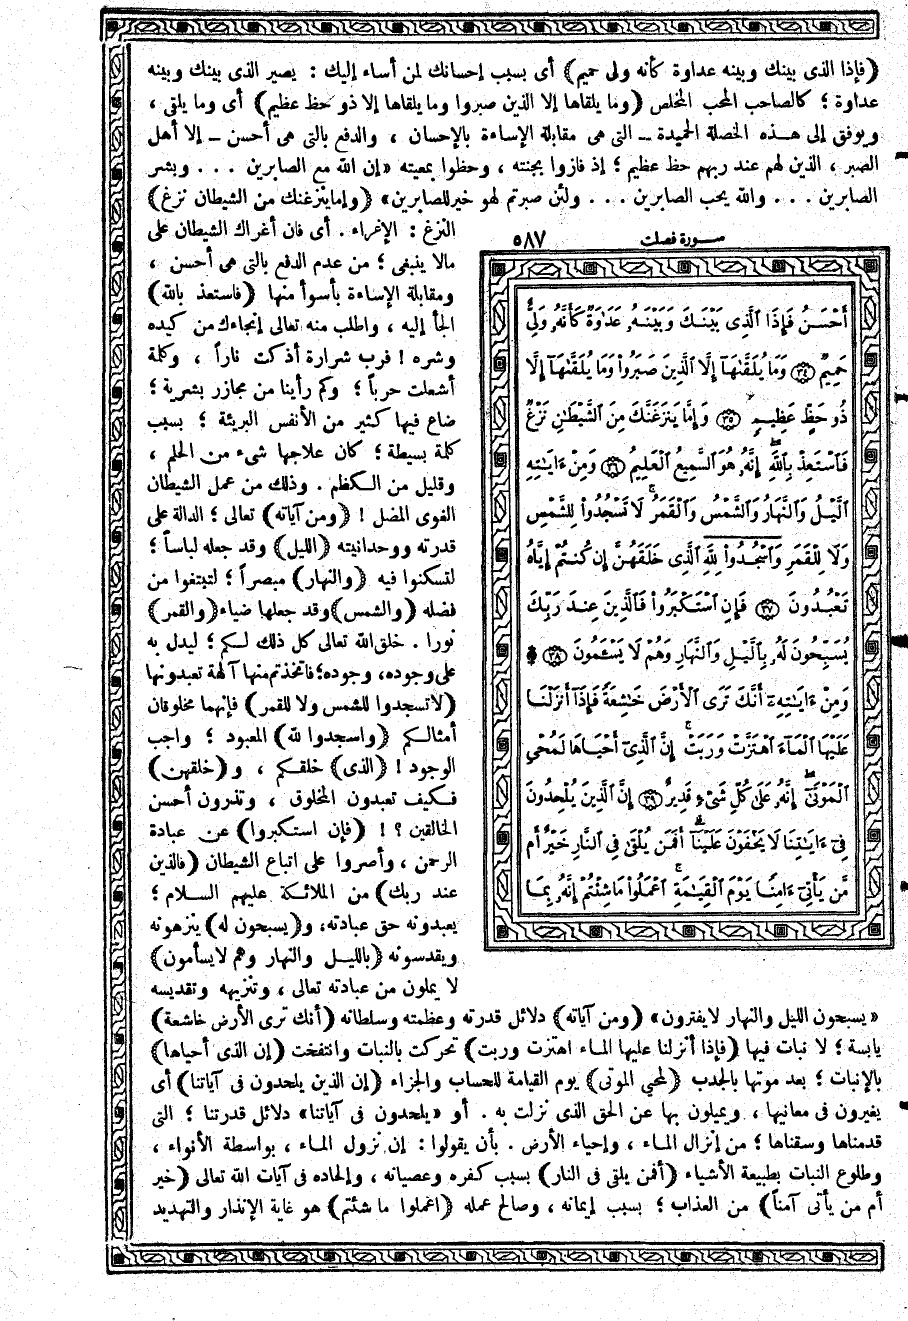 (فإذا الذى بينك وبينه عداوة كأنه ولى حميم) أى بسبب إحسانك لمن أساء إليك : يصير الذى بينك وبينه
عداوة ؛ كالصاحب المحب المخلص (وما يلقاها إلا الذين صبروا وما يلقاها إلا ذو حظ عظيم) أى وما يلقى ،
ويوفق إلى هـذه الخصلة الحميدة ــ التى هى مقابلة الإساءة بالإحسان ، والدفع بالتى هى أحسن ــ إلا أهل
الصبر ، الذين لهم عند ربهم حظ عظيم ؛ إذ فازوا بجنته ، وحظوا بمعيته «إن الله مع الصابرين . . . وبشر
الصابرين . . . والله يحب الصابرين . . . ولئن صبرتم لهو خير للصابرين» (وإما ينزغنك من الشيطان نزغ)
النزغ : الإغراء . أى فان أغراك الشيطان على
مالا ينبغى ؛ من عدم الدفع بالتى هى أحسن ،
ومقابلة الإساءة بأسوأ منها (فاستعذ بالله)
الجأ إليه ، واطلب منه تعالى إنجاءك من كيده
وشره ! فرب شرارة أذكت ناراً ، وكلمة
أشعلت حرباً ؛ وكم رأينا من مجازر بشرية ؛
ضاع فيها كثير من الأنفس البريئة ؛ بسبب
كلمة بسيطة ؛ كان علاجها شىء من الحلم ،
وقليل من الكظم . وذلك من عمل الشيطان
الغوى المضل ! (ومن آياته) تعالى ؛ الدالة على
قدرته ووحدانيته (الليل) وقد جعله لباساً ؛
لتسكنوا فيه (والنهار) مبصراً ؛ لتبتغوا من
فضله (والشمس) وقد جعلها ضياء (والقمر)
نورا . خلق الله تعالى كل ذلك لكم ؛ ليدل به
على وجوده، وجوده؛ فاتخذتم منها آلهة تعبدونها
(لا تسجدوا للشمس ولا للقمر) فإنهما مخلوقان
أمثالكم (واسجدوا لله) المعبود ؛ واجب
الوجود ! (الذى) خلقكم ، و (خلقهن)
فكيف تعبدون المخلوق ، وتذرون أحسن
الخالقين ؟ ! (فإن استكبروا) عن عبادة
الرحمن ، وأصروا على اتباع الشيطان (فالذين
عند ربك) من الملائكة عليهم السلام ؛
يعبدونه حق عبادته، و (يسبحون له) ينزهونه
ويقدسونه (بالليل والنهار وهم لا يسأمون)
لا يملون من عبادته تعالى ، وتنزيهه وتقديسه
سورة فصلت ٥٨٧
أَحْسَنُ فَإِذَا ٱلَّذِى بَيْنَكَ وَبَيْنَهُۥ عَدَٰوَةٌ كَأَنَّهُۥ وَلِىٌّ
حَمِيمٌ ﴿٣٤﴾ وَمَا يُلَقَّىٰهَآ إِلَّا ٱلَّذِينَ صَبَرُوا۟ وَمَا يُلَقَّىٰهَآ إِلَّا
ذُو حَظٍّ عَظِيمٍ ﴿٣٥﴾ وَإِمَّا يَنزَغَنَّكَ مِنَ ٱلشَّيْطَٰنِ نَزْغٌ
فَٱسْتَعِذْ بِٱللَّهِ ۖ إِنَّهُۥ هُوَ ٱلسَّمِيعُ ٱلْعَلِيمُ ﴿٣٦﴾ وَمِنْ ءَايَٰتِهِ
ٱلَّيْلُ وَٱلنَّهَارُ وَٱلشَّمْسُ وَٱلْقَمَرُ ۚ لَا تَسْجُدُوا۟ لِلشَّمْسِ
وَلَا لِلْقَمَرِ وَٱسْجُدُوا۟ لِلَّهِ ٱلَّذِى خَلَقَهُنَّ إِن كُنتُمْ إِيَّاهُ
تَعْبُدُونَ ﴿٣٧﴾ فَإِنِ ٱسْتَكْبَرُوا۟ فَٱلَّذِينَ عِندَ رَبِّكَ
يُسَبِّحُونَ لَهُۥ بِٱلَّيْلِ وَٱلنَّهَارِ وَهُمْ لَا يَسْـَٔمُونَ ﴿٣٨﴾ ۩
وَمِنْ ءَايَٰتِهِۦٓ أَنَّكَ تَرَى ٱلْأَرْضَ خَٰشِعَةً فَإِذَآ أَنزَلْنَا
عَلَيْهَا ٱلْمَآءَ ٱهْتَزَّتْ وَرَبَتْ ۚ إِنَّ ٱلَّذِىٓ أَحْيَاهَا لَمُحْىِ
ٱلْمَوْتَىٰٓ ۖ إِنَّهُۥ عَلَىٰ كُلِّ شَىْءٍ قَدِيرٌ ﴿٣٩﴾ إِنَّ ٱلَّذِينَ يُلْحِدُونَ
فِىٓ ءَايَٰتِنَا لَا يَخْفَوْنَ عَلَيْنَآ ۗ أَفَمَن يُلْقَىٰ فِى ٱلنَّارِ خَيْرٌ أَم
مَّن يَأْتِىٓ ءَامِنًا يَوْمَ ٱلْقِيَٰمَةِ ۚ ٱعْمَلُوا۟ مَا شِئْتُمْ إِنَّهُۥ بِمَا
«يسبحون الليل والنهار لا يفترون» (ومن آياته) دلائل قدرته وعظمته وسلطانه (أنك ترى الأرض خاشعة)
يابسة ؛ لا نبات فيها (فإذا أنزلنا عليها الماء اهتزت وربت) تحركت بالنبات وانتفخت (إن الذى أحياها)
بالإنبات ؛ بعد موتها بالجدب (لمحي الموتى) يوم القيامة للحساب والجزاء (إن الذين يلحدون فى آياتنا) أى
يغيرون فى معانيها ، ويميلون بها عن الحق الذى نزلت به . أو «يلحدون فى آياتنا» دلائل قدرتنا ؛ التى
قدمناها وسقناها ؛ من إنزال الماء ، وإحياء الأرض . بأن يقولوا : إن نزول الماء ، بواسطة الأنواء ،
وطلوع النبات بطبيعة الأشياء (أفمن يلقى فى النار) بسبب كفره وعصيانه ، وإلحاده فى آيات الله تعالى (خير
أم من يأتى آمناً) من العذاب ؛ بسبب إيمانه ، وصالح عمله (اعملوا ما شئتم) هو غاية الإنذار والتهديد